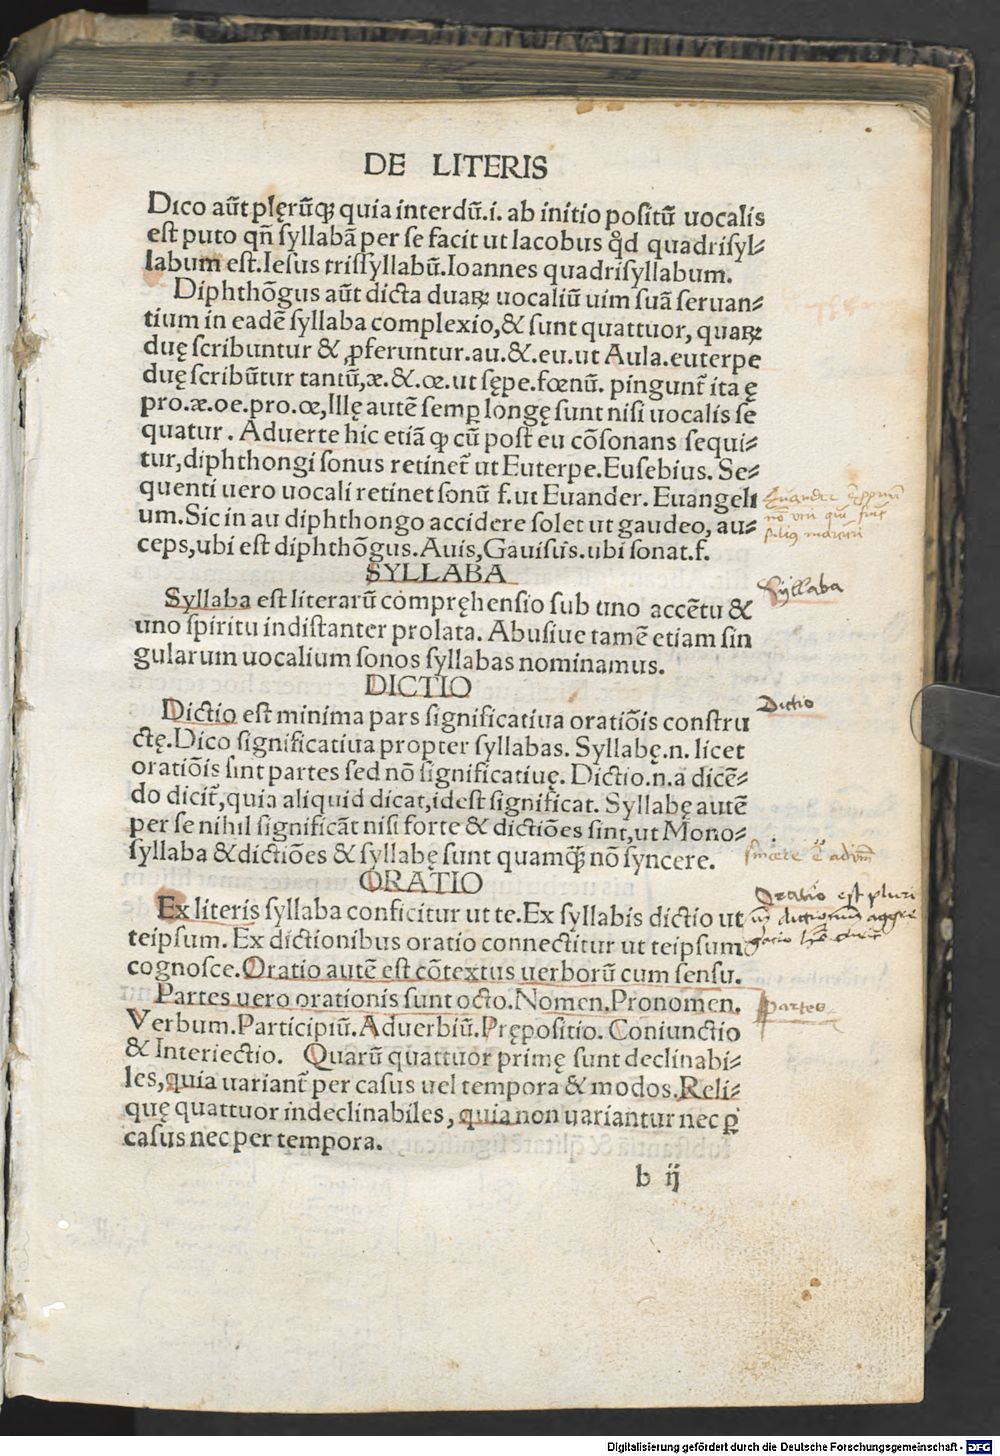 DE LITERIS
Dico aūt plęrūqꝫ quia interdū.i. ab initio positū uocalis
est puto qñ syllabā per se facit ut Iacobus qd̉ quadrisyl⸗
labum est.Iesus trissyllabū.Ioannes quadrisyllabum.
Diphthōgus aūt dicta duaꝝ uocaliū uim suā seruan⸗
tium in eadē syllaba complexio,& sunt quattuor, quaꝝ
duę scribuntur & ꝓferuntur.au.&.eu.ut Aula.euterpe
duę scribūtur tantū,æ.&.œ.ut sępe.fœnū. pingunt̄ ita ę
pro.æ.oe.pro.œ,Illę autē semꝑ longę sunt nisi uocalis se
quatur. Aduerte hic etiā ꝙ cū post eu cōsonans sequi⸗
tur,diphthongi sonus retinet̄ ut Euterpe.Eusebius. Se⸗
quenti uero uocali retinet sonū f.ut Euander. Euangeli
um.Sic in au diphthongo accidere solet ut gaudeo, au⸗
ceps,ubi est diphthōgus.Auis,Gauisus.ubi sonat.f.
SYLLABA
Syllaba
Syllaba est literarū compręhensio sub uno accētu &
uno spiritu indistanter prolata. Abusiue tamē etiam sin
gularum uocalium sonos syllabas nominamus.
DICTIO
Dictio
Dictio est minima pars significatiua oratiōis constru
ctę.Dico significatiua propter syllabas. Syllabę.n. licet
oratiōis sint partes sed nō significatiuę. Dictio.n.a dicē⸗
do dicit̄,quia aliquid dicat,idest significat. Syllabę autē
per se nihil significāt nisi forte & dictiōes sint,ut Mono⸗
syllaba & dictiōes & syllabę sunt quamqꝫ̄ nō syncere.
ORATIO
Oratio est pluri
Ex literis syllaba conficitur ut te.Ex syllabis dictio ut
teipsum. Ex dictionibus oratio connectitur ut teipsum
cognosce.Oratio autē est cōtextus uerborū cum sensu.
Partes uero orationis sunt octo.Nomen.Pronomen.
Partes
Verbum.Participiū.Aduerbiū.Prępositio. Coniunctio
& Interiectio. Quarū quattuor primę sunt declinabi⸗
les,quia uariant̄ per casus uel tempora & modos.Reli⸗
quę quattuor indeclinabiles, quia non uariantur nec ꝑ
casus nec per tempora.
b ij
Digitalisierung gefördert durch die Deutsche Forschungsgemeinschaft - DFG